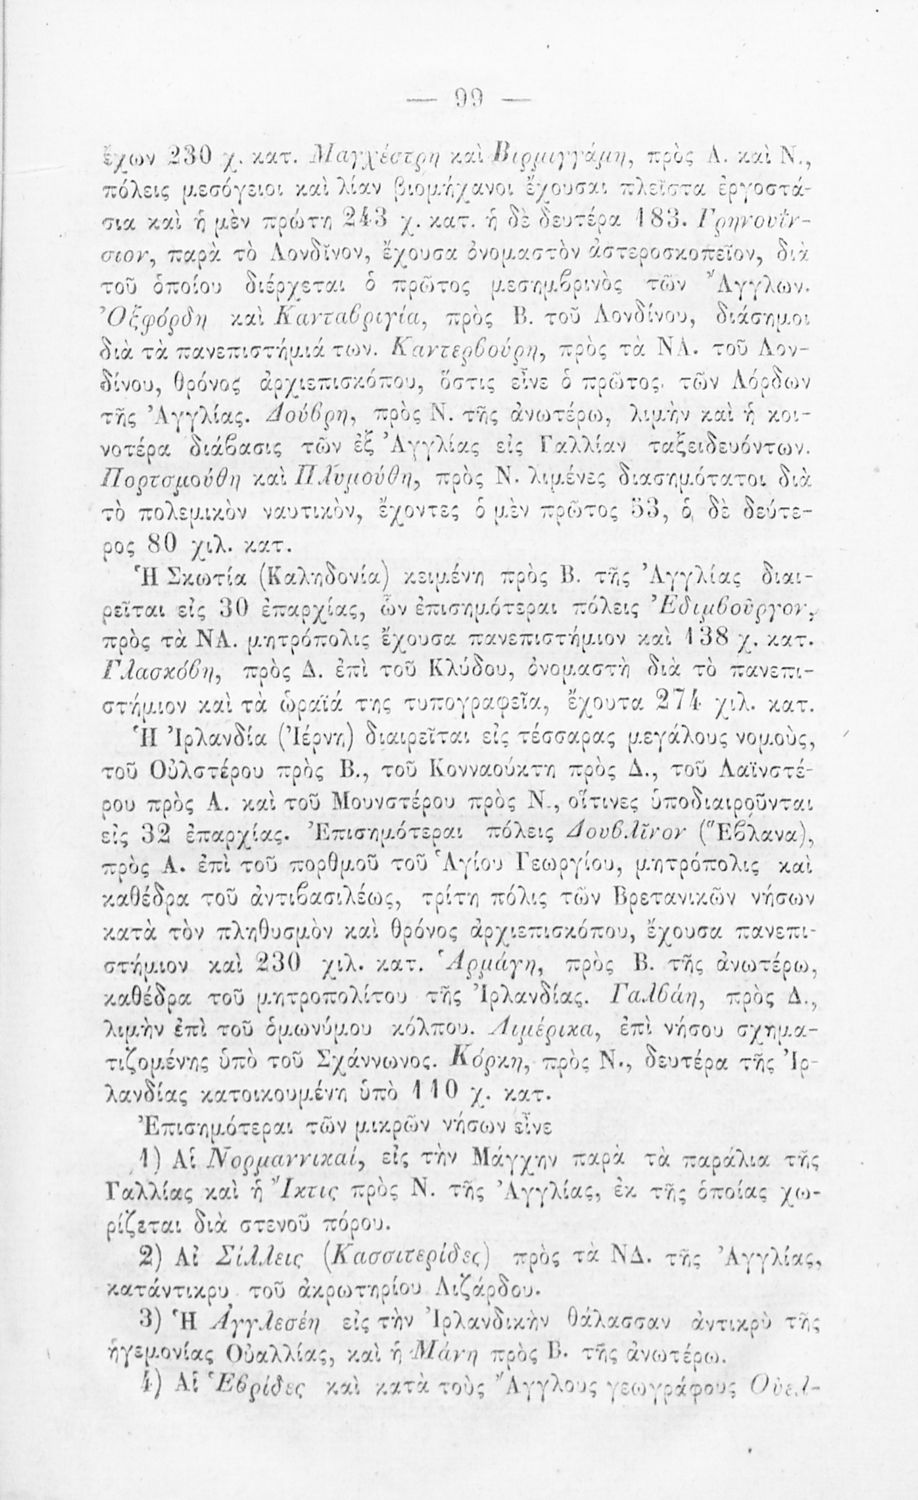 — 99 —
ἔχων 230 χ. κατ. Μαγχέστρη καὶ Βιρμιγγάμη, πρὸς Δ. καὶ Ν.,
πόλεις μεσόγειοι καὶ λίαν βιομήχανοι ἔχουσαι πλεῖστα ἐργοστά-
σια καὶ ἡ μὲν πρώτη 243 χ. κατ. ἡ δὲ δευτέρα 183. Γρηνουΐκ-
σιον, παρὰ τὸ Λονδῖνον, ἔχουσα ὀνομαστὸν ἀστεροσκοπεῖον, διὰ
τοῦ ὁποίου διέρχεται ὁ πρῶτος μεσημβρινὸς τῶν Ἄγγλων.
Ὀξφόρδη καὶ Κανταβριγία, πρὸς Β. τοῦ Λονδίνου, διάσημοι
διὰ τὰ πανεπιστήμιά των. Καντερβούρη, πρὸς τὰ ΝΑ. τοῦ Λον-
δίνου, θρόνος ἀρχιεπισκόπου, ὅστις εἶνε ὁ πρῶτος τῶν Λόρδων
τῆς Ἀγγλίας. Δούβρη, πρὸς Ν. τῆς ἀνωτέρω, λιμὴν καὶ ἡ κοι-
νοτέρα διάβασις τῶν ἐξ Ἀγγλίας εἰς Γαλλίαν ταξειδευόντων.
Πορτσμούθη καὶ Πλυμούθη, πρὸς Ν. λιμένες διασημότατοι διὰ
τὸ πολεμικὸν ναυτικὸν, ἔχοντες ὁ μὲν πρῶτος 53, ὁ δὲ δεύτε-
ρος 80 χιλ. κατ.
Ἡ Σκωτία (Καληδονία) κειμένη πρὸς Β. τῆς Ἀγγλίας διαι-
ρεῖται εἰς 30 ἐπαρχίας, ὧν ἐπισημότεραι πόλεις Ἐδιμβοῦργον,
πρὸς τὰ ΝΑ. μητρόπολις ἔχουσα πανεπιστήμιον καὶ 138 χ. κατ.
Γλασκόβη, πρὸς Δ. ἐπὶ τοῦ Κλύδου, ὀνομαστὴ διὰ τὸ πανεπι-
στήμιον καὶ τὰ ὡραῖά της τυπογραφεῖα, ἔχουτα 274 χιλ. κατ.
Ἡ Ἰρλανδία (Ἰέρνη) διαιρεῖται εἰς τέσσαρας μεγάλους νομοὺς,
τοῦ Οὐλστέρου πρὸς Β., τοῦ Κονναούκτη πρὸς Δ., τοῦ Λαϊνστέ-
ρου πρὸς Α. καὶ τοῦ Μουνστέρου πρὸς Ν., οἵτινες ὑποδιαιροῦνται
εἰς 32 ἐπαρχίας. Ἐπισημότεραι πόλεις Δουβλῖνον (Ἔβλανα),
πρὸς Α. ἐπὶ τοῦ πορθμοῦ τοῦ Ἁγίου Γεωργίου, μητρόπολις καὶ
καθέδρα τοῦ ἀντιβασιλέως, τρίτη πόλις τῶν Βρετανικῶν νήσων
κατὰ τὸν πληθυσμὸν καὶ θρόνος ἀρχιεπισκόπου, ἔχουσα πανεπι-
στήμιον καὶ 230 χιλ. κατ. Ἁρμάγη, πρὸς Β. τῆς ἀνωτέρω,
καθέδρα τοῦ μητροπολίτου τῆς Ἰρλανδίας. Γαλβάη, πρὸς Δ.,
λιμὴν ἐπὶ τοῦ ὁμωνύμου κόλπου. Λιμέρικα, ἐπὶ νήσου σχημα-
τιζομένης ὑπὸ τοῦ Σχάννωνος. Κόρκη, πρὸς Ν., δευτέρα τῆς Ἰρ-
λανδίας κατοικουμένη ὑπὸ 110 χ. κατ.
Ἐπισημότεραι τῶν μικρῶν νήσων εἶνε
1) Αἱ Νορμαννικαί, εἰς τὴν Μάγχην παρὰ τὰ παράλια τῆς
Γαλλίας καὶ ἡ Ἴκτις πρὸς Ν. τῆς Ἀγγλίας, ἐκ τῆς ὁποίας χω-
ρίζεται διὰ στενοῦ πόρου.
2) Αἱ Σίλλεις (Κασσιτερίδες) πρὸς τὰ ΝΔ. τῆς Ἀγγλίας,
κατάντικρυ τοῦ ἀκρωτηρίου Λιζάρδου.
3) Ἡ Ἀγγλεσέη εἰς τὴν Ἰρλανδικὴν θάλασσαν ἀντικρὺ τῆς
ἡγεμονίας Οὐαλλίας, καὶ ἡ Μάνη πρὸς Β. τῆς ἀνωτέρω.
4) Αἱ Ἑβρίδες καὶ κατὰ τοὺς Ἄγγλους γεωγράφους Οὐελ-